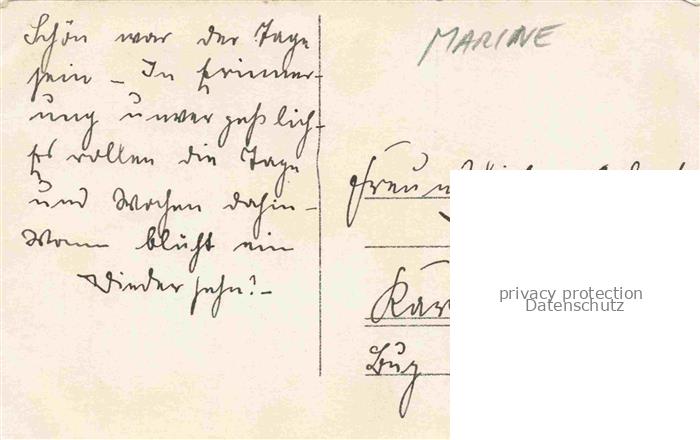 Schön war der Tage
sein – In Erinner-
ung unvergeßlich
Es rollen die Tage
und Wochen dahin –
Wann blüht ein
Wiedersehn? –
MARINE
privacy protection
Datenschutz